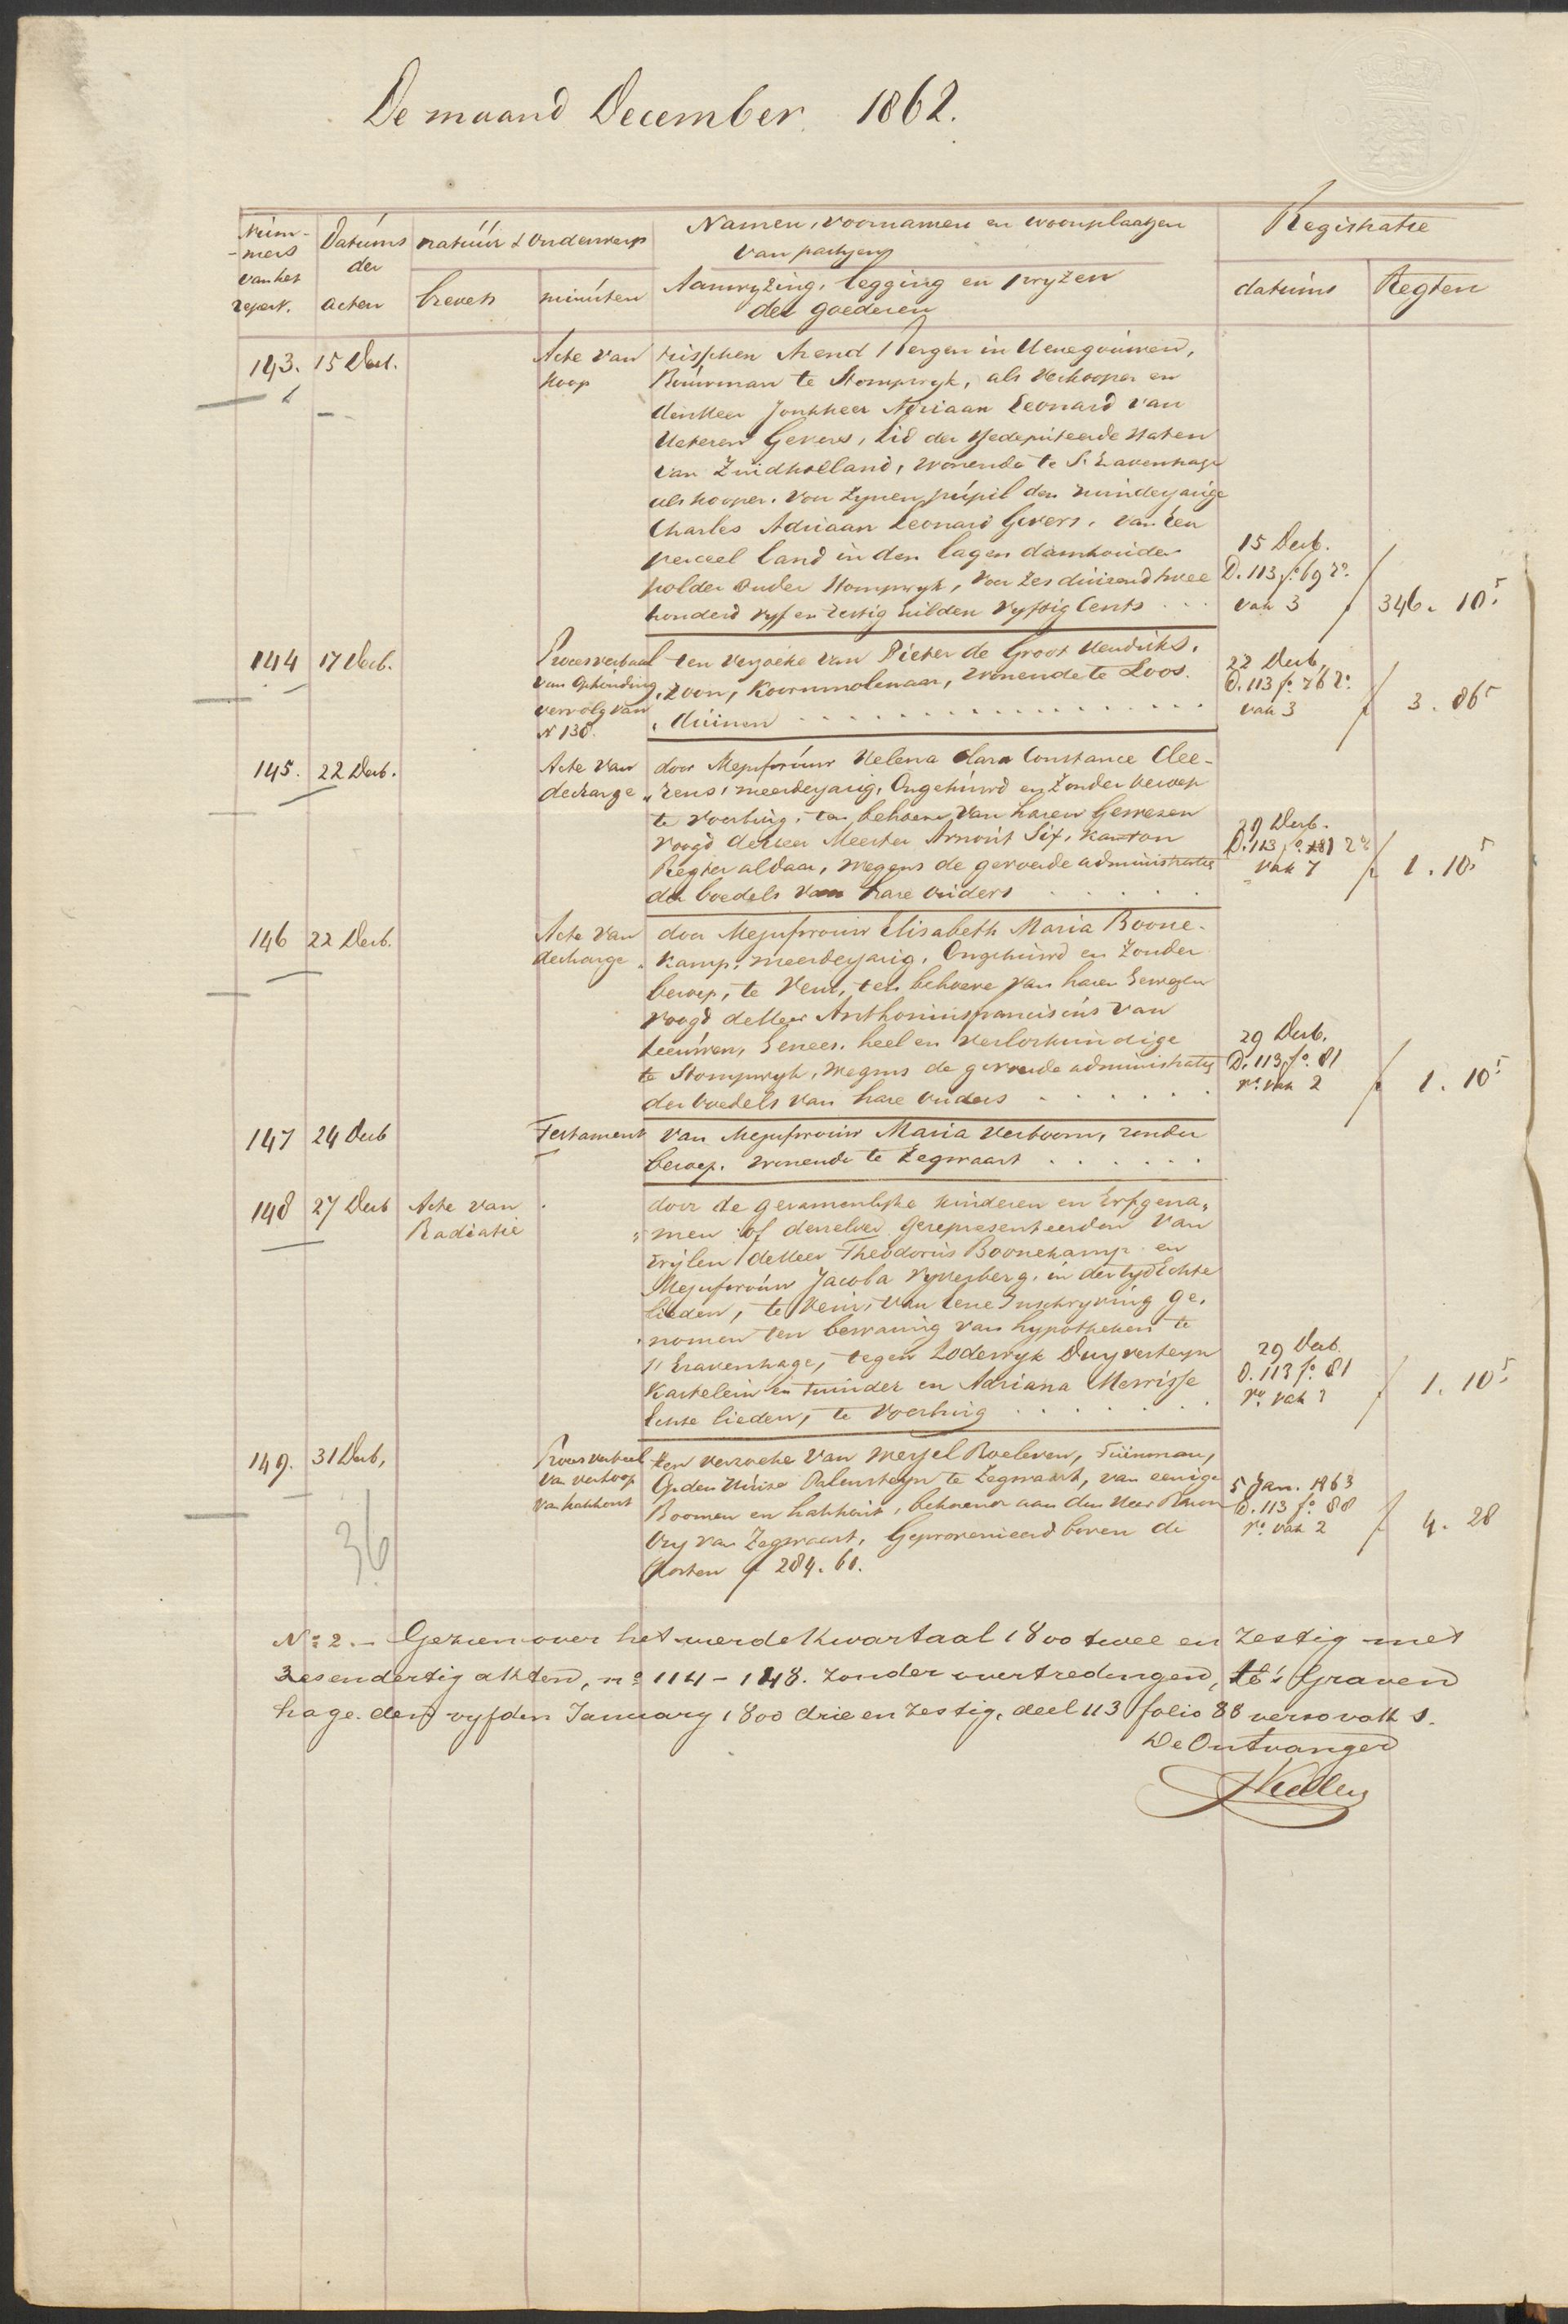 De maand December 1862.
Num-
-mers
van het
repert.
Datums
der
acten
natuur & Onderwerp
brevets
minuten
Namen, voornamen en woonplaatsen
van partyen
Aanwyzing, legging en pryzen
der goederen
Registratie
datums
Regten
143. 15 Decb.
Acte van
Koop
tusschen Arend Bergen in Henegouwen,
Bouwman te Stompwyk, als Verkooper en
den Heer Jonkheer Adriaan Leonard van
Heteren Gevers, Lid der Gedeputeerde Staten
van Zuidholland, wonende te S. Gravenhage
als kooper. voor zynen pupil den minderjarige
Charles Adriaan Leonard Gevers, van Een
perceel land in den lagen damhouder
polder onder Stompwyk, voor zes duizend twee
honderd vyf en zestig Gulden vyftig Cents . . .
15 Decb.
D. 113 fo. 69 ro.
vak 3
f 346. 10.5
144 17 Decb.
Procesverbaal
van Ophouding
vervolg van
N 138.
ten verzoeke van Pieter de Groot Hendriks,
zoon, Koornmolenaar, wonende te Loos.
duinen . . . . . . . . . . . . . . . .
22 Decb.
D. 113 fo. 76 ro.
vak 3
f 3. 86 5
145. 22 Decb.
Acte van
decharge
door Mejufvrouw Helena Clara Constance Clee-
rens, meerderjarig, Ongehuwd en Zonder beroep
te Voorburg, ten behoeve van haren Gewezen
Voogd de Heer Meester Arnout Six, Kanton
Regter aldaar, wegens de gevoerde administratie
der boedels van hare Ouders . . . . .
29 Decb.
D. 113 fo. 81
vak 7
f 1. 10 5
146 22 Decb.
Acte van
decharge
door Mejufvrouw Elisabeth Maria Boone-
kamp, meerderjarig, Ongehuwd en Zonder
beroep, te Veur, ten behoeve van haren Gewezen
Voogd de Heer Anthonius franciscus van
Leeuwen, Genees. heel en Verloskundige
te Stompwyk, wegens de gevoerde administratie
der boedels van hare Ouders . . . . . .
29 Decb.
D. 113 fo. 81
ro. vak 2
f 1. 10 5
147 24 Decb
Testament
van Mejufvrouw Maria Verboom, zonder
beroep. wonende te Zegwaart . . . . . .
148 27 Decb
Acte van
Radiatie
door de gezamenlyke kinderen en Erfgena-
men of derzelver Gerepresenteerden van
wylen de Heer Theodorus Boonekamp en
Mejufvrouw Jacoba Vynesberg, in dertyd Echte
lieden, te Veur, van eene Inschryving ge.
nomen ten bewaring van hypotheken te
S' Gravenhage, tegen Lodewyk Duyvesteyn
Kastelein en tuinder en Adriana Merrisse
Echte lieden, te Voorburg . . . . . . .
29 Decb
D. 113 fo. 81
ro. vak 2
f 1. 10 5
149. 31 Decb,
Procesverbaal
van verkoop
van hakhout
ten verzoeke van Roeleven, Tuinman,
Op den Huize Palensteyn te Zegwaart, van eenige
Boomen en hakhout, behorende aan den Heer Baron
Vry van Zegwaart, Geprovenieerd boven de
kosten f 284. 60.
5 Jan. 1863
D. 113 fo. 88
ro. vak 2
f 4. 28
36
No 2. - Gezien over het vierde Kwartaal 1800 twee en zestig met
zesendertig akten, no 114 - 148. zonder overtredingen, te 's Graven
hage. den vyfden January 1800 drie en zestig, deel 113 folio 88 verso vak 1.
De Ontvanger